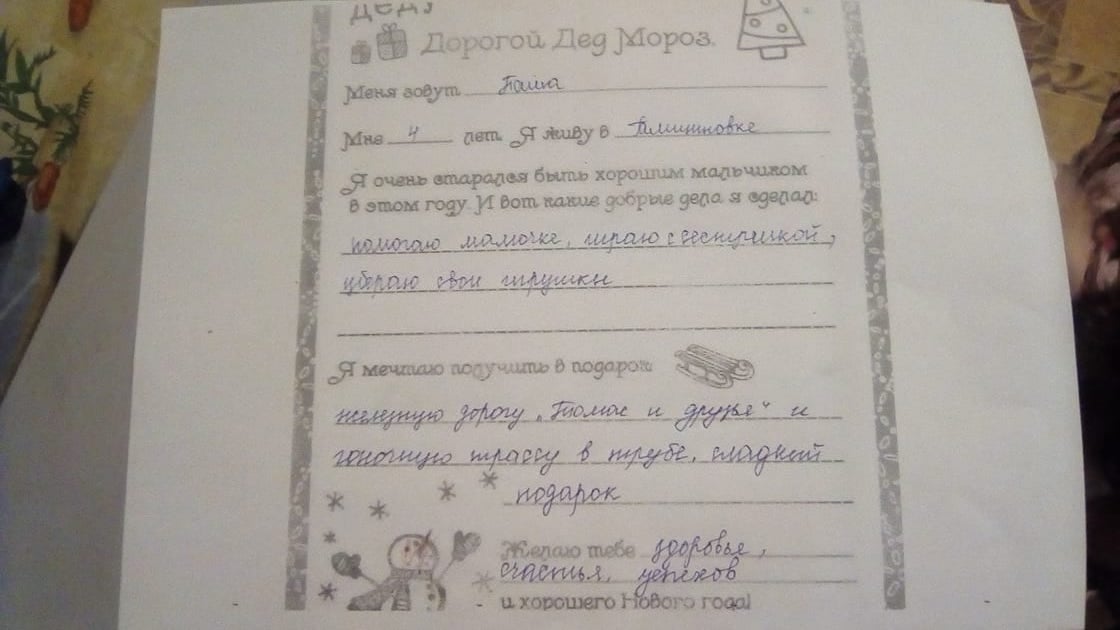 ДЕДУ
Дорогой Дед Мороз.
Меня зовут
Мне 4 лет. Я живу в
Я очень старался быть хорошим мальчиком
в этом году. И вот какие добрые дела я сделал:
помогаю мамочке, играю с сестричкой,
убераю свои игрушки
Я мечтаю получить в подарок
железную дорогу „Томас и друзья" и
гоночную трассу в трубе, сладкий
подарок
Желаю тебе здоровье,
счастья, успехов
и хорошего Нового года!